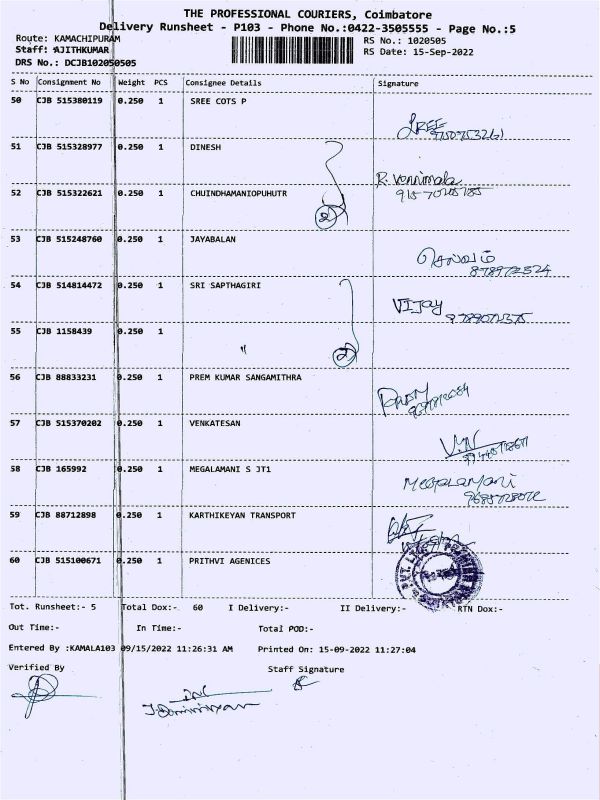 THE PROFESSIONAL COURIERS, Coimbatore
Delivery Runsheet - P103 - Phone No.:0422-3505555 - Page No.:5
Route: KAMACHIPURAM RS No.: 1020505
Staff: AJITHKUMAR RS Date: 15-Sep-2022
DRS No.: DCJB102050505
S No Consignment No Weight PCS Consignee Details Signature
50 CJB 515380119 0.250 1 SREE COTS P
SREE
51 CJB 515328977 0.250 1 DINESH
R. Vennimala
52 CJB 515322621 0.250 1 CHUINDHAMANIOPUHUTR
2
53 CJB 515248760 0.250 1 JAYABALAN
செல்வம்
54 CJB 514814472 0.250 1 SRI SAPTHAGIRI
VIJAY
55 CJB 1158439 0.250 1
" 2
56 CJB 88833231 0.250 1 PREM KUMAR SANGAMITHRA
57 CJB 515370202 0.250 1 VENKATESAN
V.N
58 CJB 165992 0.250 1 MEGALAMANI S JT1
Megalamani
59 CJB 88712898 0.250 1 KARTHIKEYAN TRANSPORT
60 CJB 515100671 0.250 1 PRITHVI AGENICES
Tot. Runsheet:- 5 Total Dox:- 60 I Delivery:- II Delivery:- RTN Dox:-
Out Time:- In Time:- Total POD:-
Entered By :KAMALA103 09/15/2022 11:26:31 AM Printed On: 15-09-2022 11:27:04
Verified By Staff Signature